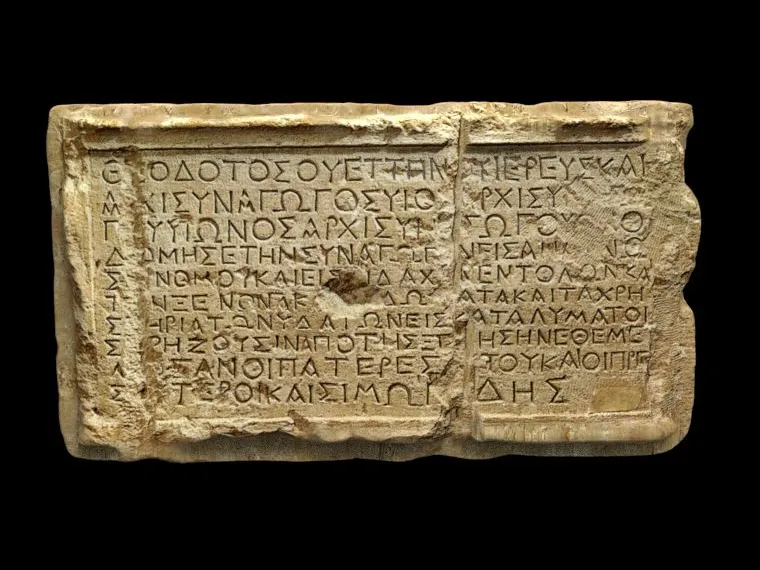 ΘΕΟΔΟΤΟΣ ΟΥΕΤΤΗΝΟΥ ΙΕΡΕΥΣ ΚΑΙ
ΑΡΧΙΣΥΝΑΓΩΓΟΣ ΥΙΟΣ ΑΡΧΙΣΥ
ΥΙΩΝΟΣ ΑΡΧΙΣΥΝ ΓΩΓΟΥ Ο
ΔΟΜΗΣΕ ΤΗΝ ΣΥΝΑΓΩΓ Ν ΕΙΣ ΑΝ ΝΩ
Σ Ν ΝΟΜΟΥ ΚΑΙ ΕΙΣ ΙΔΑΧ Ν ΕΝΤΟΛΩΝ ΚΑ
Τ Ν ΞΕΝΩΝΑ Κ ΔΩ ΑΤΑ ΚΑΙ ΤΑ ΧΡΗ
Σ ΗΡΙΑ ΤΩΝ ΥΔΑΤΩΝ ΕΙΣ ΑΤΑΛΥΜΑ ΤΟΙ
Σ ΡΗΖΟΥΣΙΝ ΑΠΟ ΤΗΣ ΞΕ ΗΣ ΗΝ ΕΘΕΜΕ
Λ ΣΑΝ ΟΙ ΠΑΤΕΡΕΣ ΤΟΥ ΚΑΙ ΟΙ ΠΡΕ
Σ ΤΕΡΟΙ ΚΑΙ ΣΙΜΩΝ ΔΗΣ